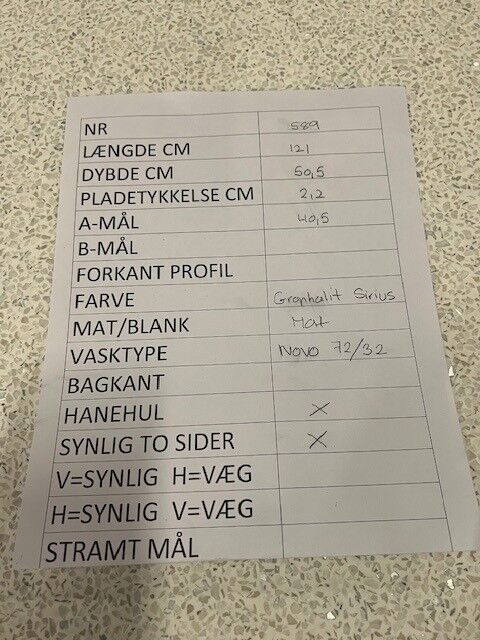 NR 589
LÆNGDE CM 121
DYBDE CM 50,5
PLADETYKKELSE CM 2,2
A-MÅL 40,5
B-MÅL
FORKANT PROFIL
FARVE Granhalit Sirius
MAT/BLANK Mat
VASKTYPE Novo 72/32
BAGKANT
HANEHUL X
SYNLIG TO SIDER X
V=SYNLIG H=VÆG
H=SYNLIG V=VÆG
STRAMT MÅL